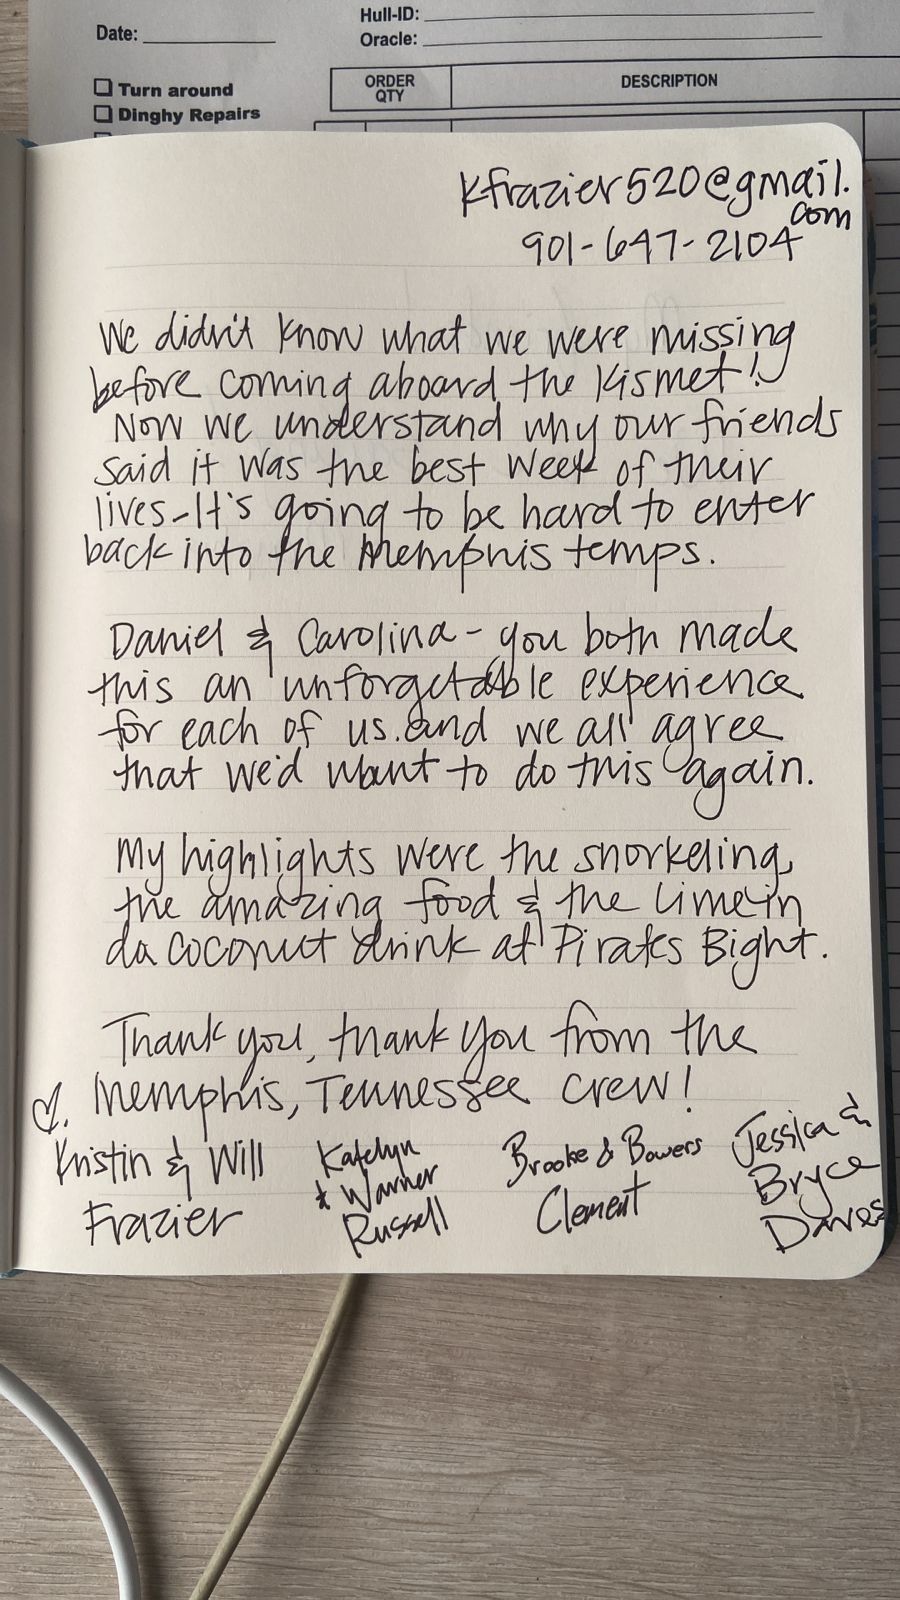 Hull-ID:
Date:
Oracle:
Turn around
ORDER QTY
DESCRIPTION
Dinghy Repairs
kfrazier520@gmail.
com
901-647-2104
We didn't know what we were missing
before coming aboard the Kismet!
Now we understand why our friends
said it was the best week of their
lives - It's going to be hard to enter
back into the Memphis temps.
Daniel & Carolina - you both made
this an unforgetable experience
for each of us. and we all agree
that we'd want to do this again.
My highlights were the snorkeling,
the amazing food & the Lime in
da coconut drink at Pirates Bight.
Thank you, thank you from the
♡. Memphis, Tennessee crew!
Kristin & Will
Frazier
Katelyn
& Warner
Russell
Brooke & Bowers
Clement
Jessica &
Bryce